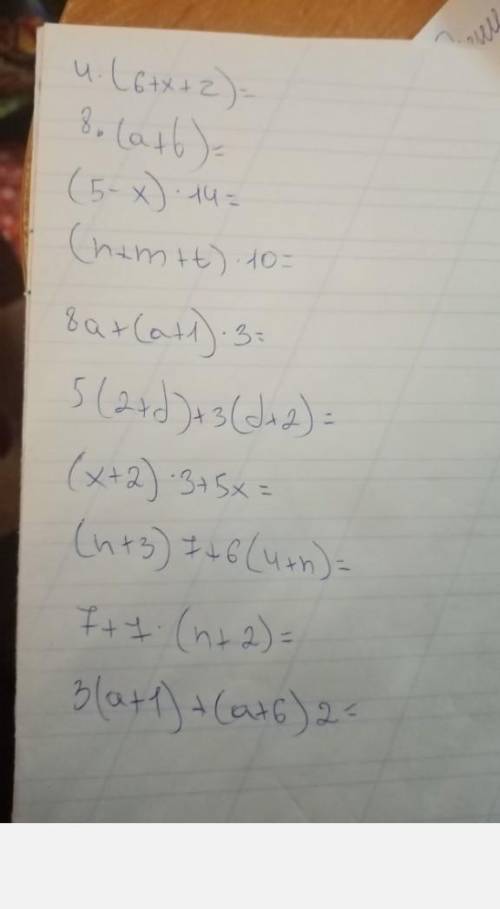 4·(6+x+z)=
8·(a+b)=
(5-x)·14=
(n+m+t)·10=
8a+(a+1)·3=
5(2+d)+3(d+2)=
(x+2)·3+5x=
(n+3)7+6(4+n)=
7+7·(n+2)=
3(a+1)+(a+6)2=